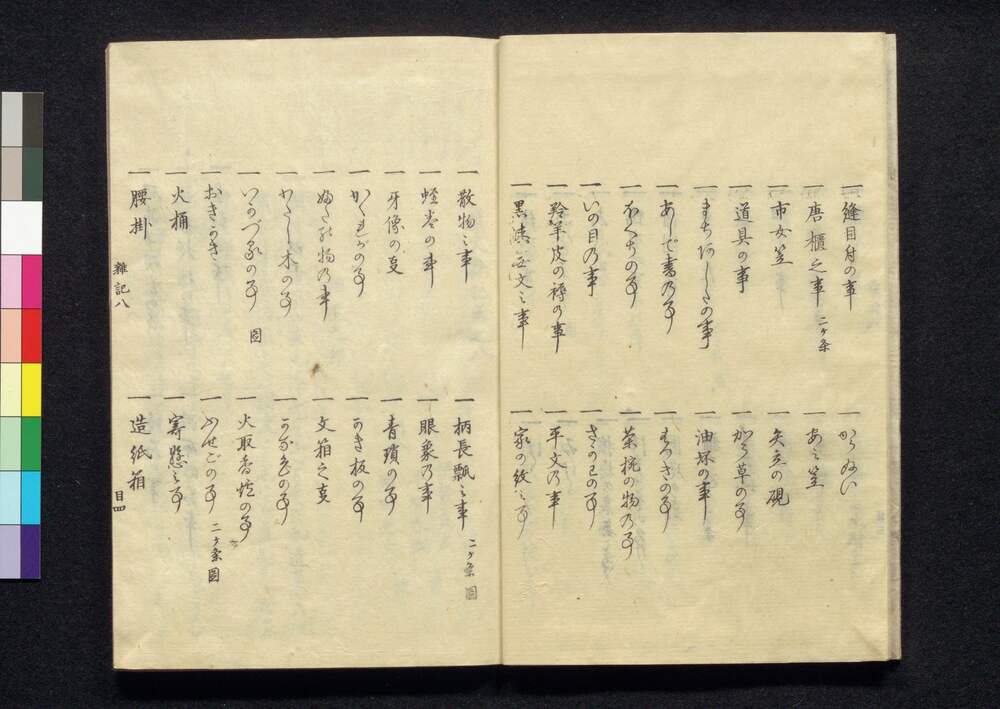 一 縫目付の事
一 からぬい
一 唐櫃之事 二ケ条
一 あミ笠
一 市女笠
一 矢立の硯
一 道具の事
一 かう草の事
一 まちあしたの事
一 油坏の事
一 あしで書乃事
一 はつきの事
一 ほくちの事
一 茶椀の物乃事
一 いの目乃事
一 さかわの事
一 羚羊皮の褥の事
一 平文乃事
一 黒漆 文之事
一 家の紋之事
一 散物之事
一 柄長瓢之事 二ケ条 図
一 蛭巻の事
一 眼象乃事
一 牙像の事
一 青瑣の事
一 かくれがの事
一 かき板の事
一 ぬりの物乃事
一 文箱之事
一 かたしろ木の事
一 事
一 いのづみの事 図
一 火取香炉の事
一 おきかき
一 ふせごの事 二ケ条 図
一 火桶
一 寄懸之事
一 腰掛
一 造紙箱
雑記八
目四